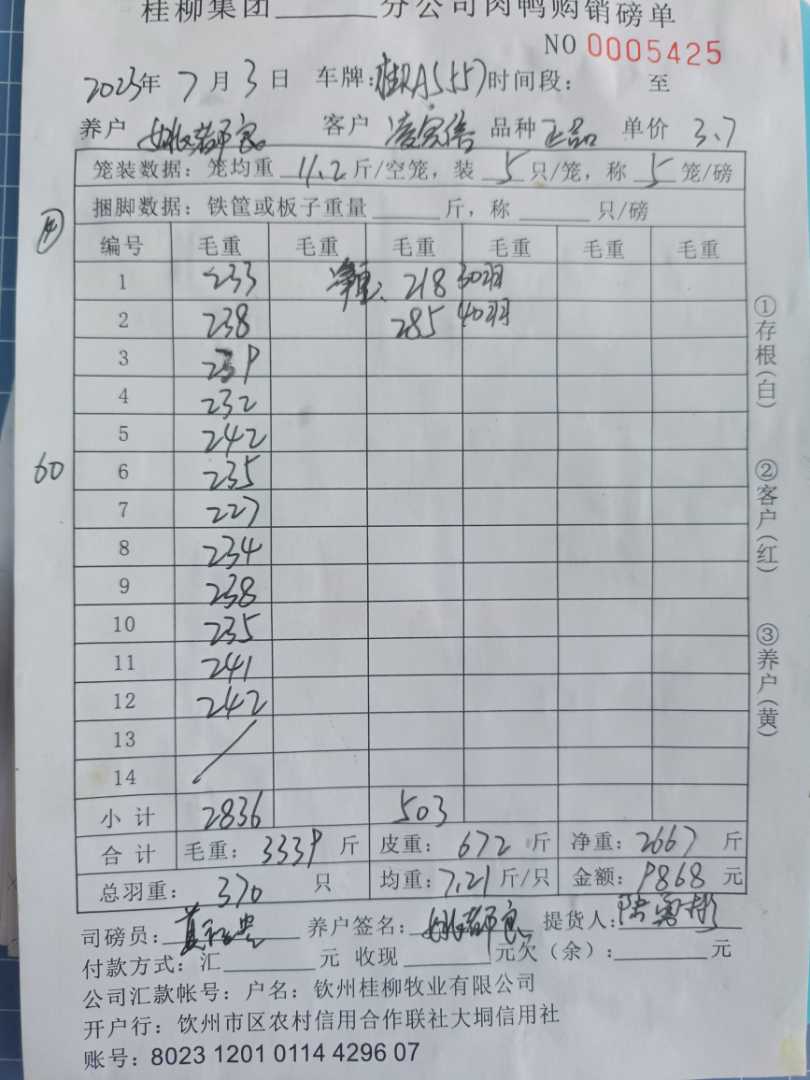 桂柳集团______分公司肉鸭购销磅单
NO 0005425
2023年 7月3日 车牌:桂RA5557 时间段: 至
养户 客户 品种 正品 单价 3.7
笼装数据: 笼均重 11.2 斤/空笼, 装 5 只/笼, 称 5 笼/磅
捆脚数据: 铁筐或板子重量______斤, 称______只/磅
编号 毛重 毛重 毛重 毛重 毛重 毛重
1 233 净重: 218 30羽
2 238 285 40羽
3 239
4 232
5 242
60
6 235
7 227
8 234
9 238
10 235
11 241
12 242
13
14
小计 2836 503
合计 毛重: 3339 斤 皮重: 672 斤 净重: 2667 斤
总羽重: 370 只 均重: 7.21 斤/只 金额: 9868 元
司磅员: 养户签名: 提货人:
付款方式: 汇______元 收现______元欠(余):______元
公司汇款帐号: 户名: 钦州桂柳牧业有限公司
开户行: 钦州市区农村信用合作联社大垌信用社
账号: 8023 1201 0114 4296 07
①存根(白)
②客户(红)
③养户(黄)